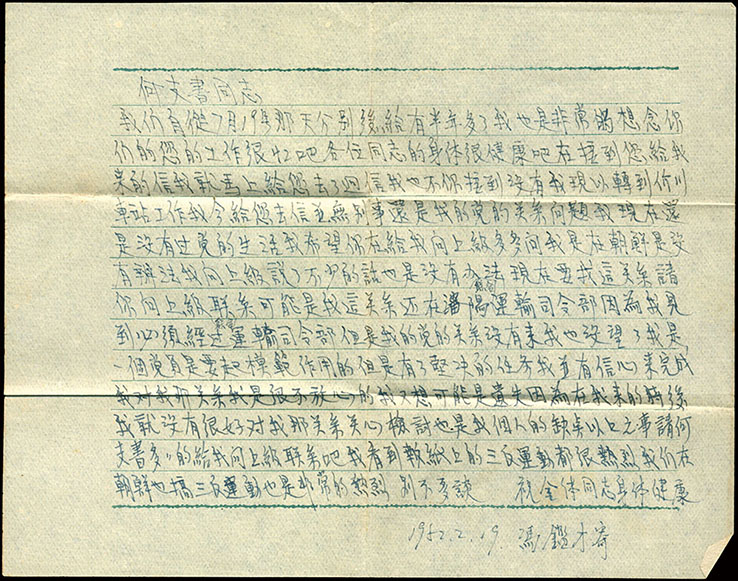 何支書同志
我们自從7月19号那天分别後給有半年多了我也是非常的想念你
们的您的工作很忙吧各位同志的身体很健康吧在接到您給我
来的信我就馬上給您去了回信我也不你接到没有我現以轉到价川
車站工作我今給您去信並無别事還是我的党的关系问題我現在還
是没有过党的生活我希望你在給我向上級多多问我是在朝鮮是没
有辦法我向上級説了不少的話也是没有办法現在要我這关系請
你向上級联系可能是我這关系还在瀋陽運輸司令部因為我見
到 須經过運輸司令部但是我的党的关系没有来我也没望了我是
一個党員是要起模範作用的但是有了堅决的任务我並有信心来完成
我对我那关系我是很不放心的我又想可能是遺失因為在我来的時後
我就没有很好对我那关系关心檢討也是我個人的缺点以上之事請何
支書多的給我向上級联系吧我看到報紙上的三反運動都很熱烈我们在
朝鮮也搞三反運動也是非常的熱烈 别不多談 祝全体同志身体健康
1952.2.19. 馮鑑才寄